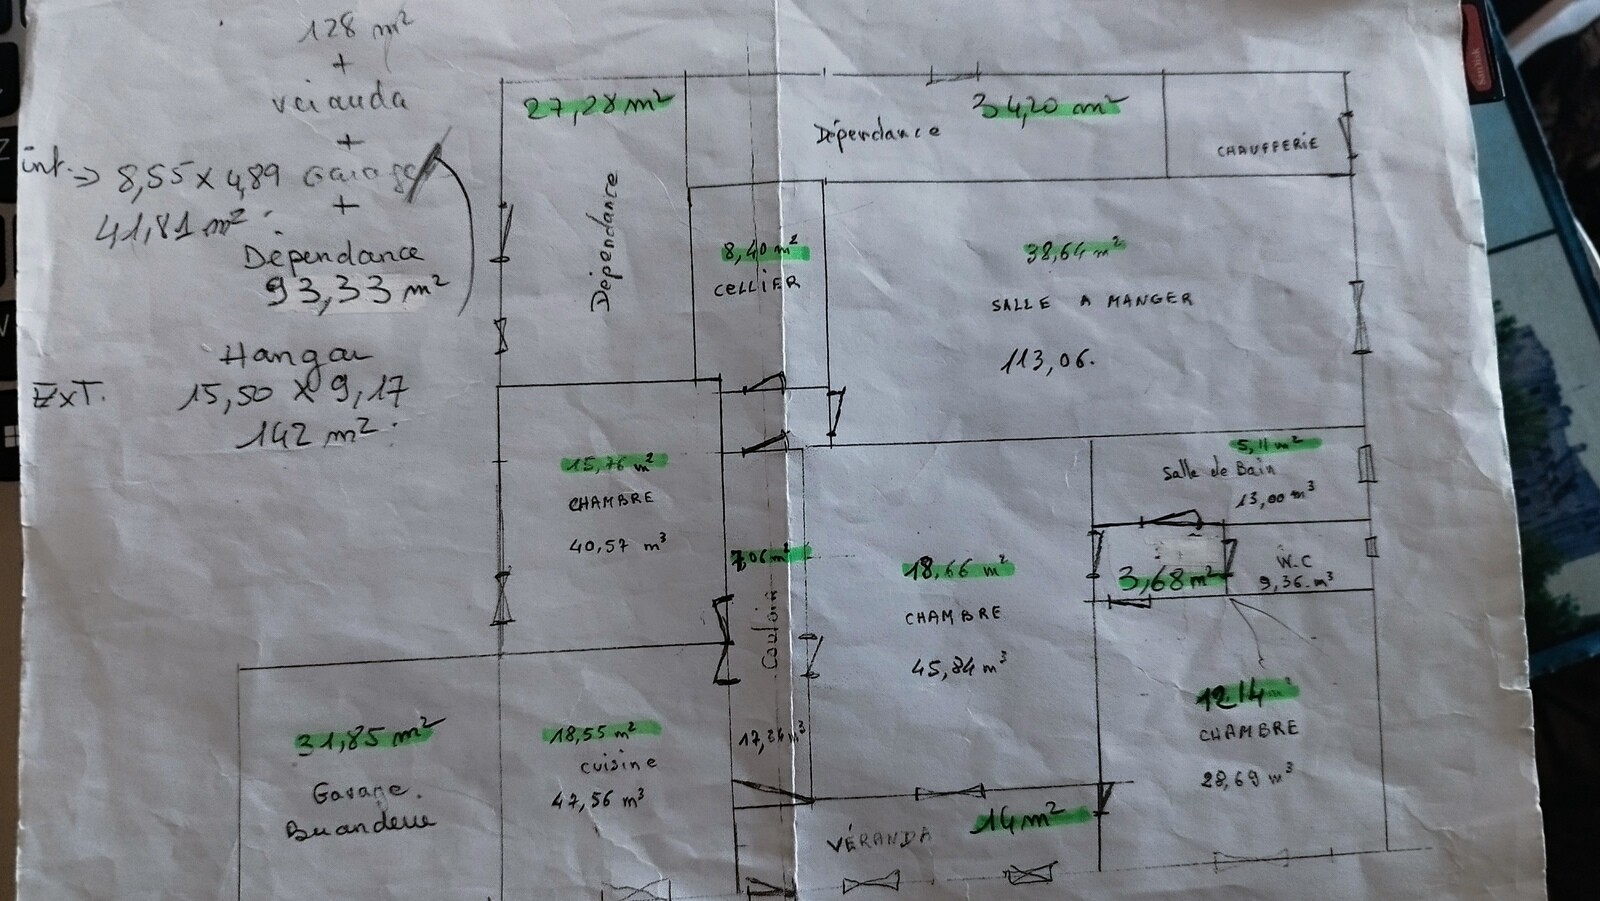 128 m²
+
véranda
+
int. -> 8,55 x 4,89 Garage
41,81 m².
+
Dépendance
93,33 m²
Hangar
ExT. 15,50 x 9,17
142 m².
27,28 m²
Dépendance
34,20 m²
Dépendance
CHAUFFERIE
8,40 m²
CELLIER
38,64 m²
SALLE A MANGER
113,06.
15,76 m²
CHAMBRE
40,57 m³
7,06 m²
Couloir
18,66 m²
CHAMBRE
45,84 m³
5,11 m²
Salle de Bain
13,00 m³
3,68 m²
W.C
9,36 m³
12,14 m²
CHAMBRE
28,69 m³
31,85 m²
Garage.
Buanderie
18,55 m²
cuisine
47,56 m³
VÉRANDA 14 m²
SanDisk